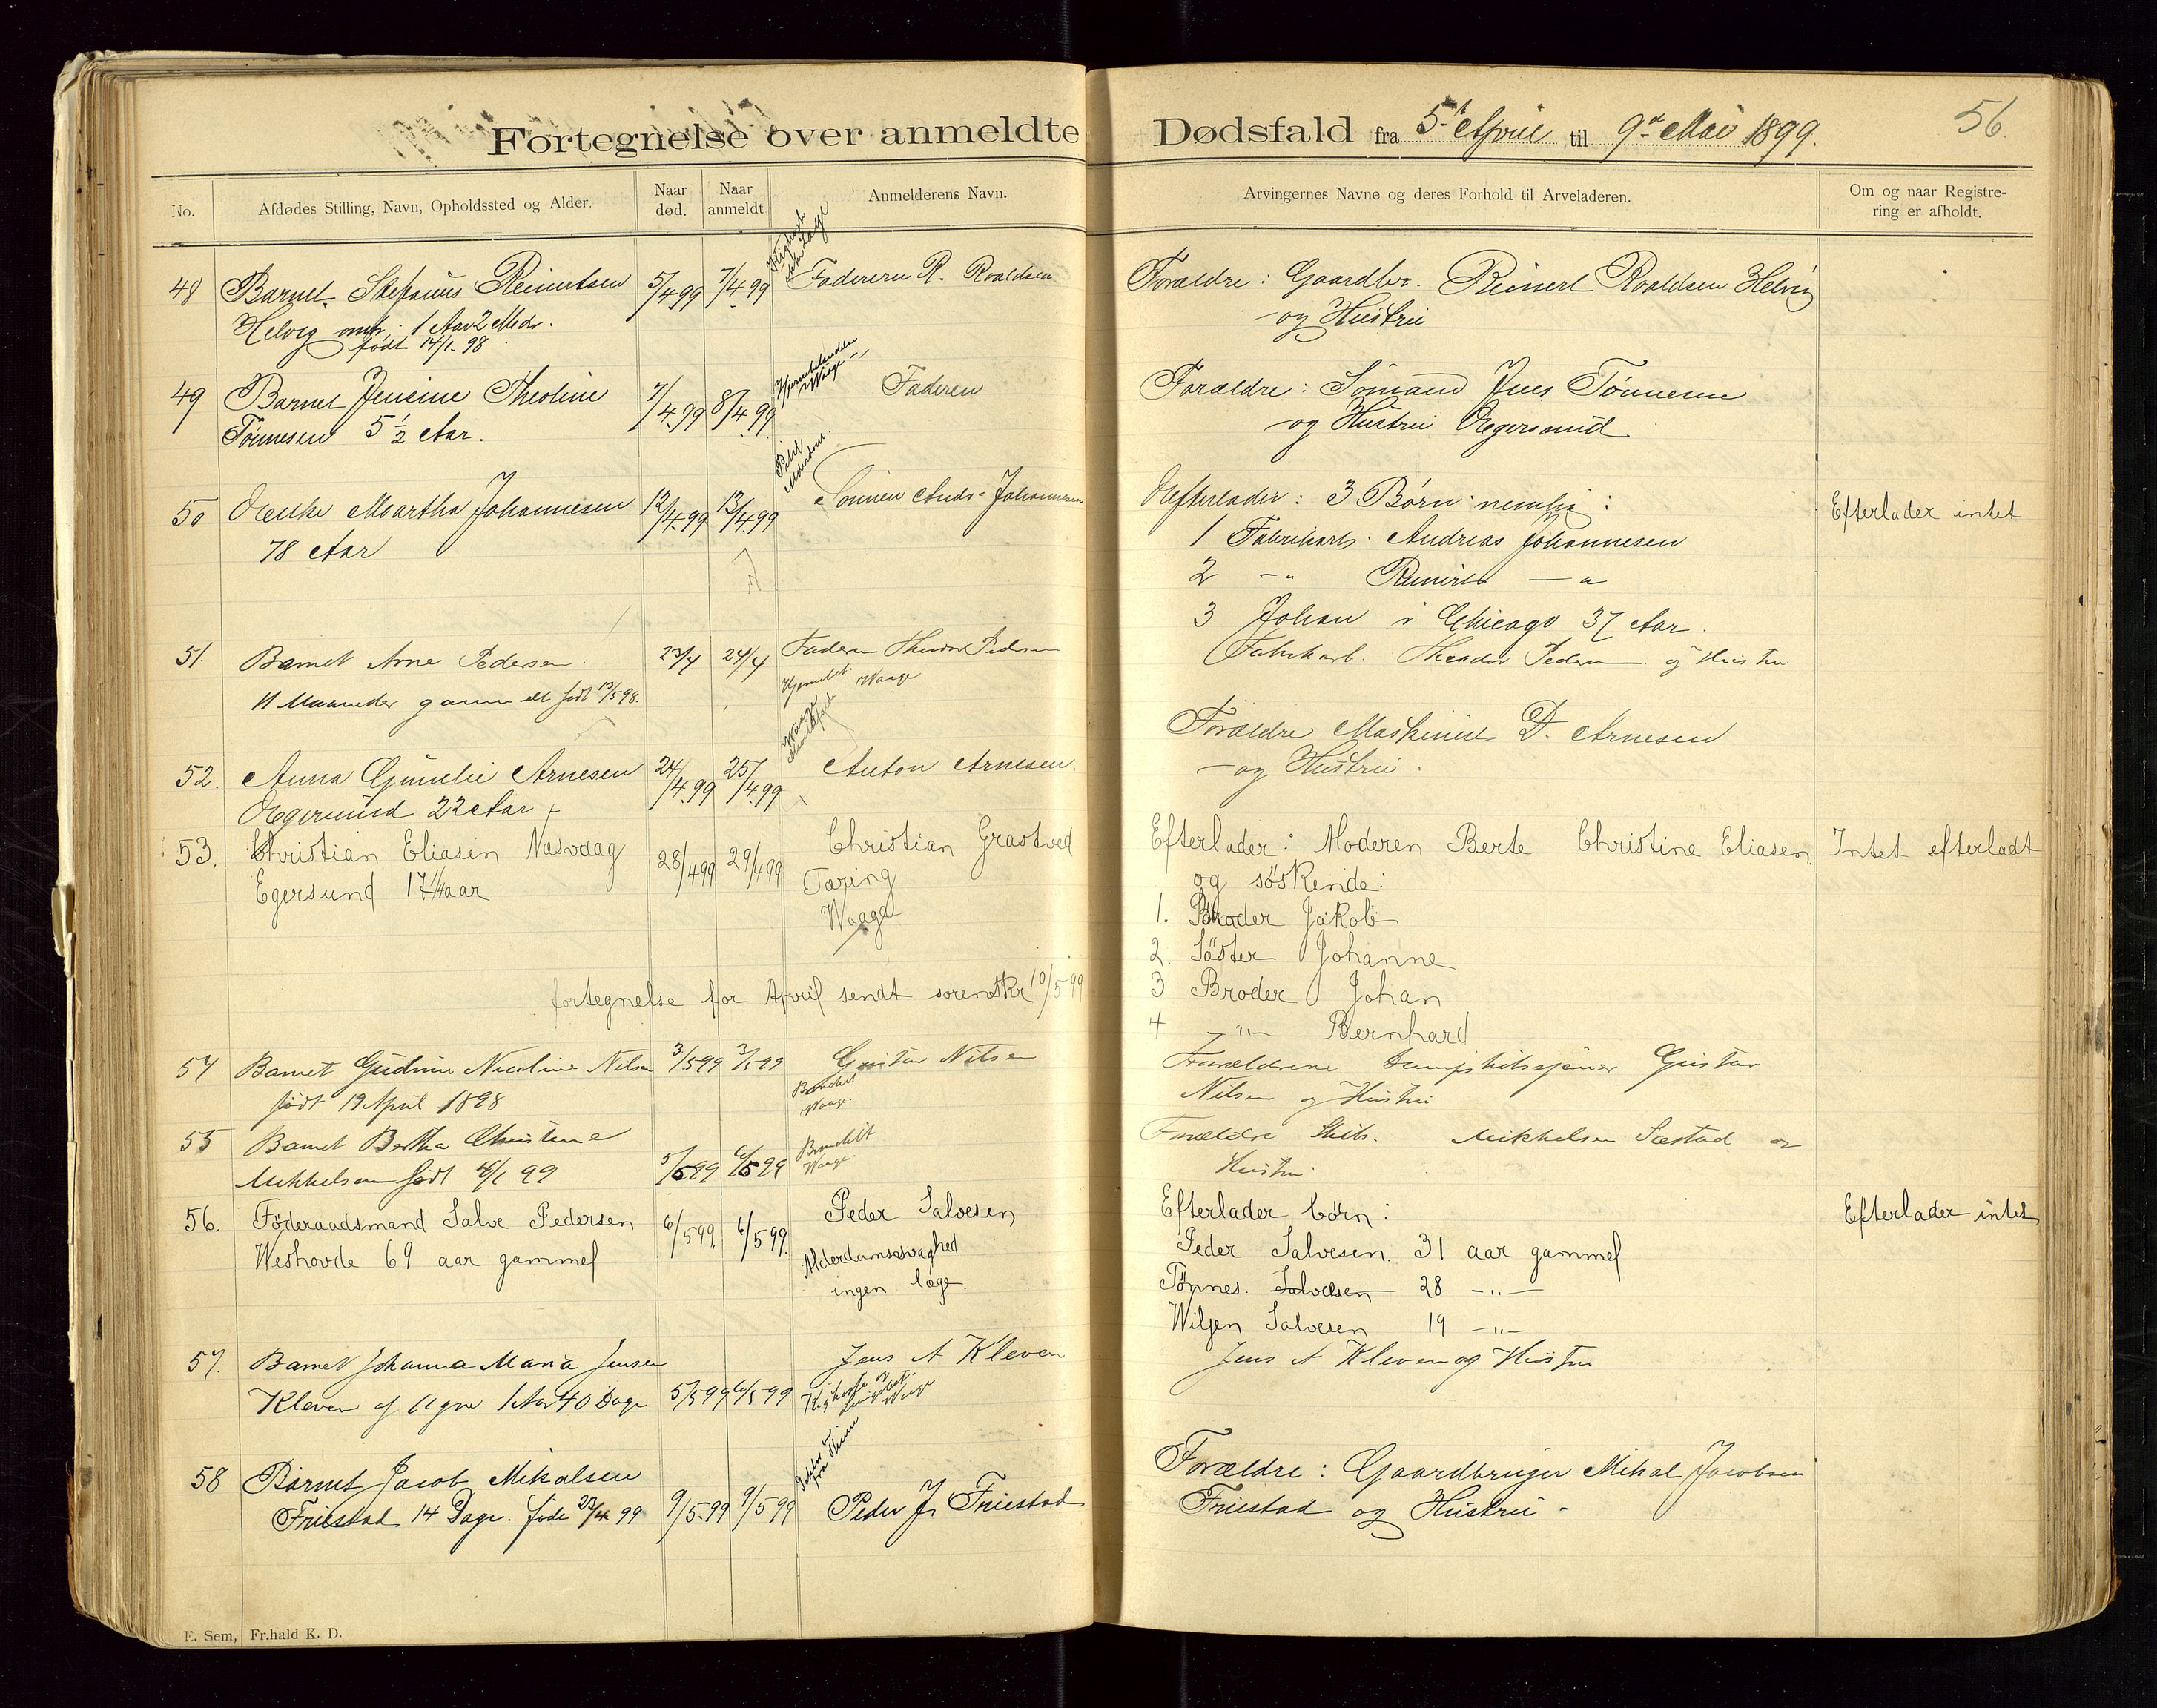 Fortegnelse over anmeldte Dødsfald fra 5t April til 9de Mai 1899. 56.
No.
Afdødes Stilling, Navn, Opholdssted og Alder.
Naar død.
Naar anmeldt
Anmelderens Navn.
Arvingernes Navne og deres Forhold til Arveladeren.
Om og naar Registrering er afholdt.
48 Barnet Stefanus Reinertsen 5/4 99 7/4 99 Faderen R. Roaldsen Forældre: Gaardbr. Reinert Roaldsen Helvig
Helvig 1 Aar 2 Mdr. og Hustru
født 14/1-98
49 Barnet Jensine Theoline 7/4.99 8/4.99 Hjernebetændelse Waage Faderen Forældre: Sømand Jens Tønnesen
Tønnesen 5 1/2 Aar. og Hustru Egersund
50 Enke Martha Johannesen 12/4.99 13/4 99 Sønnen Andr. Johannesen Efterlader: 3 Børn nemlig: Efterlader intet
78 Aar 1 Fabrikarb. Andreas Johannesen
2 -"- Reinert -"-
3 Johan i Chicago 37 Aar.
51. Barnet Arne Pedersen 23/4 24/4 Faderen Theodor Pedersen Fabrikarb. Theodor Pedersen og Hustru
11 Maaneder gammel født 13/5 98. Waage
52. Anna Gunelie Arnesen 24/4.99 25/4.99 Waage Anton Arnesen. Forældre Maskinist D. Arnesen
Egersund 22 Aar og Hustru.
53. Christian Eliasen Nasvaag 28/4 99 29/4 99 Christian Grastved Efterlader: Moderen Berte Christine Eliasen Intet efterladt
Egersund 17 1/4 aar Tæring og søskende:
Waage 1. Broder Jakob
2. Søster Johanne
fortegnelse for April sendt sorenskr 10/5 99 3 Broder Johan
4 -"- Bernhard
54 Barnet Gudrun Nicoline Nilsen 3/5 99 3/5 99 Gustav Nilsen Forældrene Gustav
født 19 April 1898 Waage. Nilsen og Hustru
55 Barnet Bertha Christine Bronchit Forældre Skib. Mikkelsen Sæstad og
Mikkelsen født 99 5/5 99 6/5 99 Waage. Hustru.
56. Føderaadsmand Salve Pedersen 6/5 99. 6/5 99. Peder Salvesen Efterlader børn: Efterlader intet
Weshovde 69 aar gammel Alderdomssvaghed Peder Salvesen. 31 aar gammel
ingen læge. Tønnes. Salvesen 28 -"-
Wilgen Salvesen 19 -"-
57. Barnet Johanna Maria Jensen Jens A Kleven Jens A Kleven og Hustru
Kleven af Ogne 1 Aar 40 Dage 5/5 99 6/5 99. Kighoste og Waage
58 Barnet Jacob Mikalsen 9/5.99 9/5 99 Peder J. Friestad Forældre: Gaardbruger Mikal Jacobsen
Friestad 14 Dage. føde 99 Friestad og Hustru
E. Sem, Fr.hald K. D.